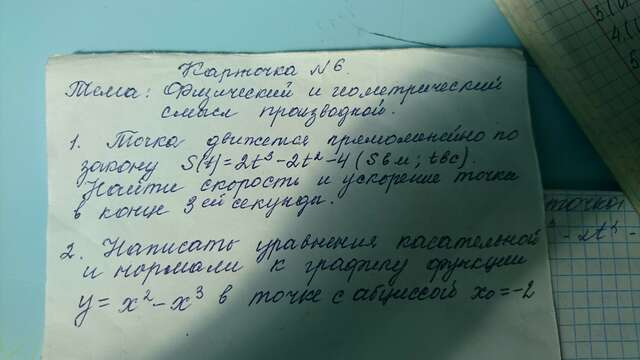 Карточка N 6.
Тема: Физический и геометрический
смысл производной.
1. Точка движется прямолинейно по
закону S(t)=2t³-2t²-4 (S в м; t в с).
Найти скорость и ускорение точки
в конце 3ей секунды.
2. Написать уравнения касательной
и нормали к графику функции
y = x² - x³ в точке с абциссой x₀ = -2